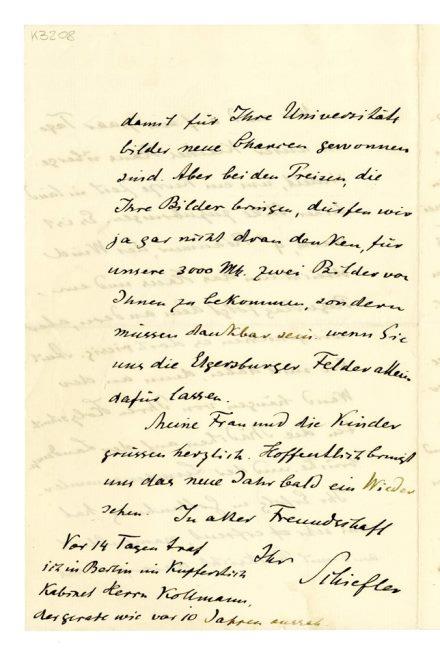 K3208
damit für Ihre Universitäts
bilder neue Chancen gewonnen
sind. Aber bei den Preisen, die
Ihre Bilder bringen, dürfen wir
ja gar nicht daran denken, für
unsere 3000 Mk. zwei Bilder von
Ihnen zu bekommen, sondern
müssen dankbar sein wenn Sie
uns die Elgersburger Felder allein
dafür lassen.
Meine Frau und die Kinder
grüssen herzlich. Hoffentlich bringt
uns das neue Jahr bald ein Wieder
sehen. In alter Freundschaft
Ihr
Schiefler
Vor 14 Tagen traf
ich in Berlin im Kupferstich
Kabinet Herrn Kollmann,
der gerade wie vor 10 Jahren aussah.